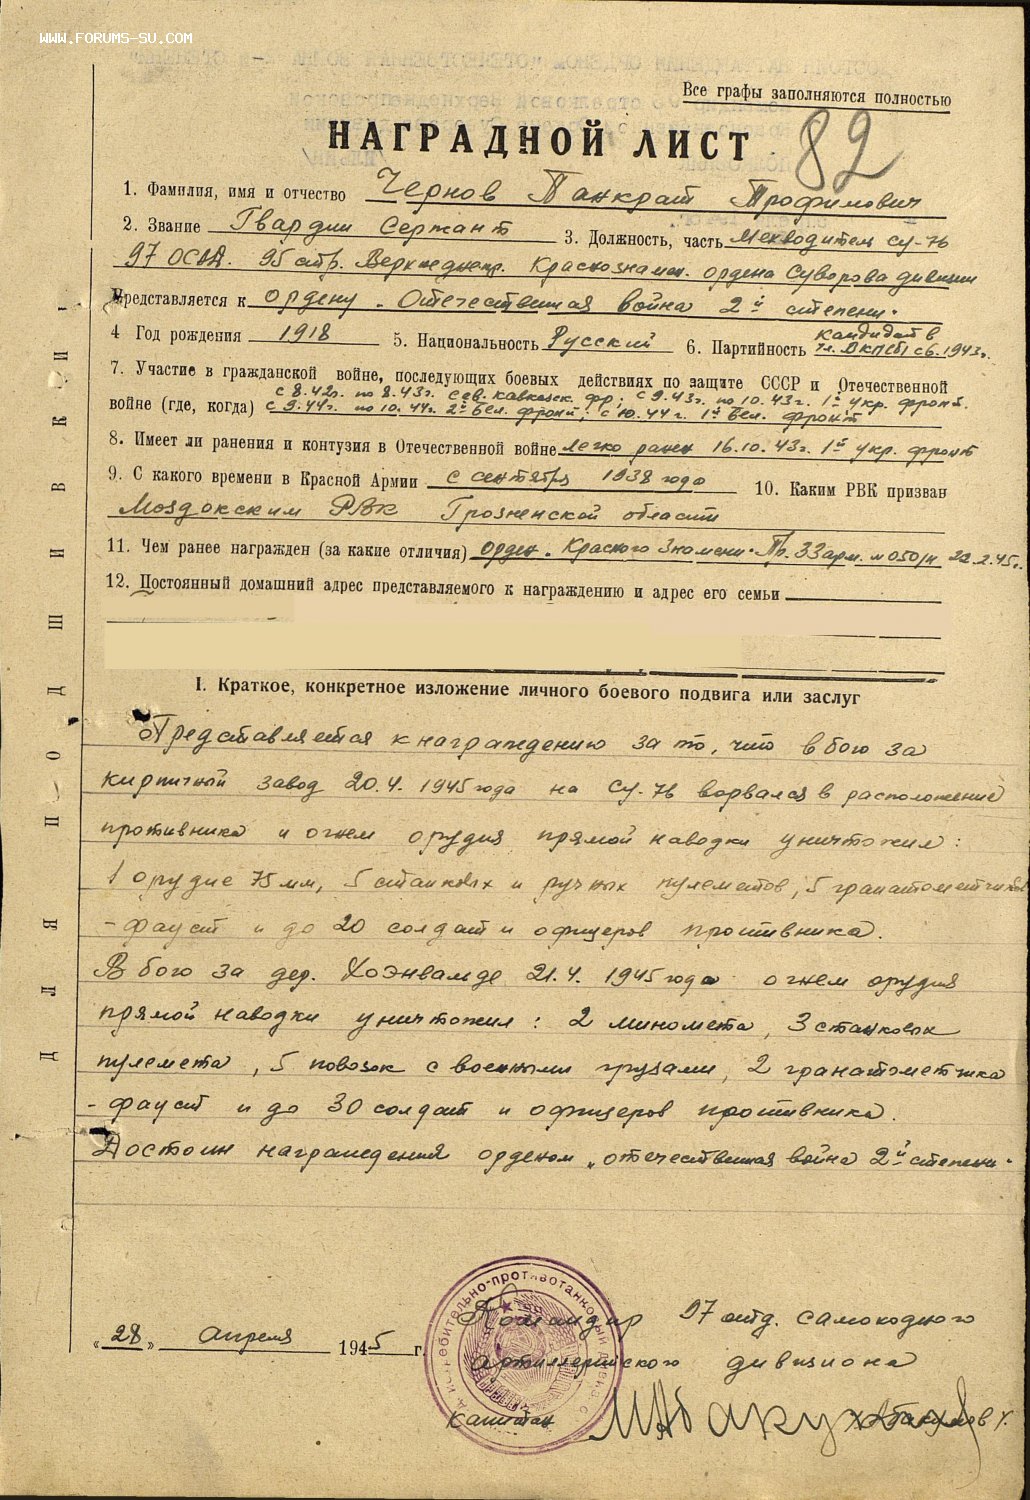 WWW.FORUMS-SU.COM
Все графы заполняются полностью
НАГРАДНОЙ ЛИСТ
82
1. Фамилия, имя и отчество Чернов Панкрат Трофимович
2. Звание Гвардии Сержант 3. Должность, часть Мехводитель СУ-76
97 ОСАД. 95 стр. Верхнеднепр. Краснознамен. ордена Суворова дивизии
Представляется к ордену „Отечественная война 2й степени."
4 Год рождения 1918 5. Национальность Русский 6. Партийность кандидат в
чл. ВКП(б) с 6. 1943г.
7. Участие в гражданской войне, последующих боевых действиях по защите СССР и Отечественной
с 8.42г. по 8.43г. сев. кавказск. фр; с 9.43г. по 10.43г. 1й укр. фронт.
войне (где, когда) с 9.44г. по 10.44г. 2й бел. фронт; с 10.44г. 1й бел. фронт
8. Имеет ли ранения и контузия в Отечественной войне легко ранен 16.10.43г. 1й укр. фронт
9. С какого времени в Красной Армии с сентября 1938 года 10. Каким РВК призван
Моздокским РВК Грозненской области
11. Чем ранее награжден (за какие отличия) орден „Красного Знамени" Пр. 33 арм. № 050/н 22.2.45г.
12. Постоянный домашний адрес представляемого к награждению и адрес его семьи
ДЛЯ ПОДШИВКИ
I. Краткое, конкретное изложение личного боевого подвига или заслуг
Представляется к награждению за то, что в бою за
кирпичный завод 20.4. 1945 года на СУ-76 ворвался в расположение
противника и огнем орудия прямой наводки уничтожил:
1 орудие 75 мм, 5 станковых и ручных пулеметов, 5 гранатометчиков
-фауст и до 20 солдат и офицеров противника.
В бою за дер. Хоэнвальде 21.4. 1945 года огнем орудия
прямой наводки уничтожил: 2 миномета, 3 станковых
пулемета, 5 повозок с военными грузами, 2 гранатометчика
-фауст и до 30 солдат и офицеров противника.
Достоин награждения орденом „отечественная война 2й степени"
Командир 97 отд. самоходного
„28" апреля 1945 г. артиллерийского дивизиона
капитан Абакумов